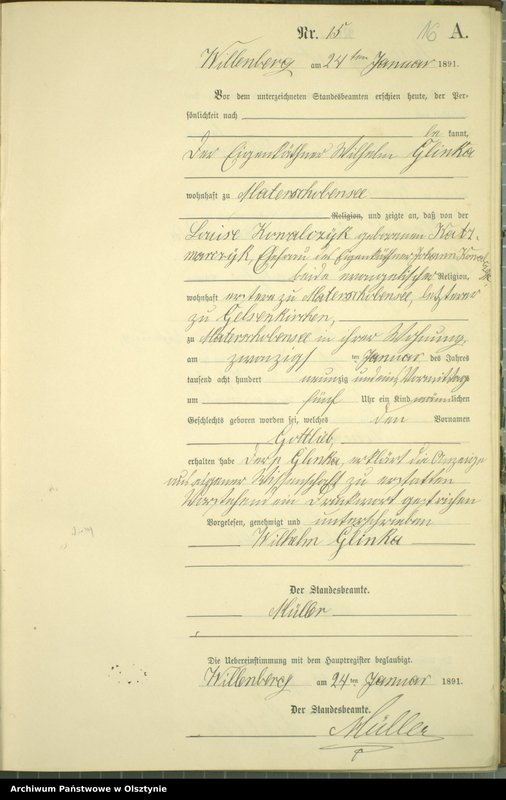 Nr. 15 16 A.
Willenberg am 24 ten Januar 1891.
Vor dem unterzeichneten Standesbeamten erschien heute, der Per-
sönlichkeit nach
be kannt,
der Eigenkäthner Wilhelm Glinka
wohnhaft zu Materschobensee
Religion, und zeigte an, daß von der
Louise Kowalczyk geborenen Katz-
marczyk, Ehefrau des Eigenkäthner Johann Kowalczyk,
beide evangelischer Religion,
wohnhaft erstere zu Materschobensee, letzterer
zu Gelsenkirchen,
zu Materschobensee in ihrer Wohnung,
am zwanzigs ten Januar des Jahres
tausend acht hundert neunzig und eins Vormittags
um fünf Uhr ein Kind männlichen
Geschlechts geboren worden sei, welches den Vornamen
Gottlieb,
erhalten habe der p Glinka, erklärt die Anzeige
aus eigener Wissenschaft zu erstatten
Vorstehend ein Druckwort gestrichen
Vorgelesen, genehmigt und unterschrieben
Wilhelm Glinka
Der Standesbeamte.
Müller
Die Uebereinstimmung mit dem Hauptregister beglaubigt.
Willenberg am 24 ten Januar 1891.
Der Standesbeamte.
Müller
Archiwum Państwowe w Olsztynie